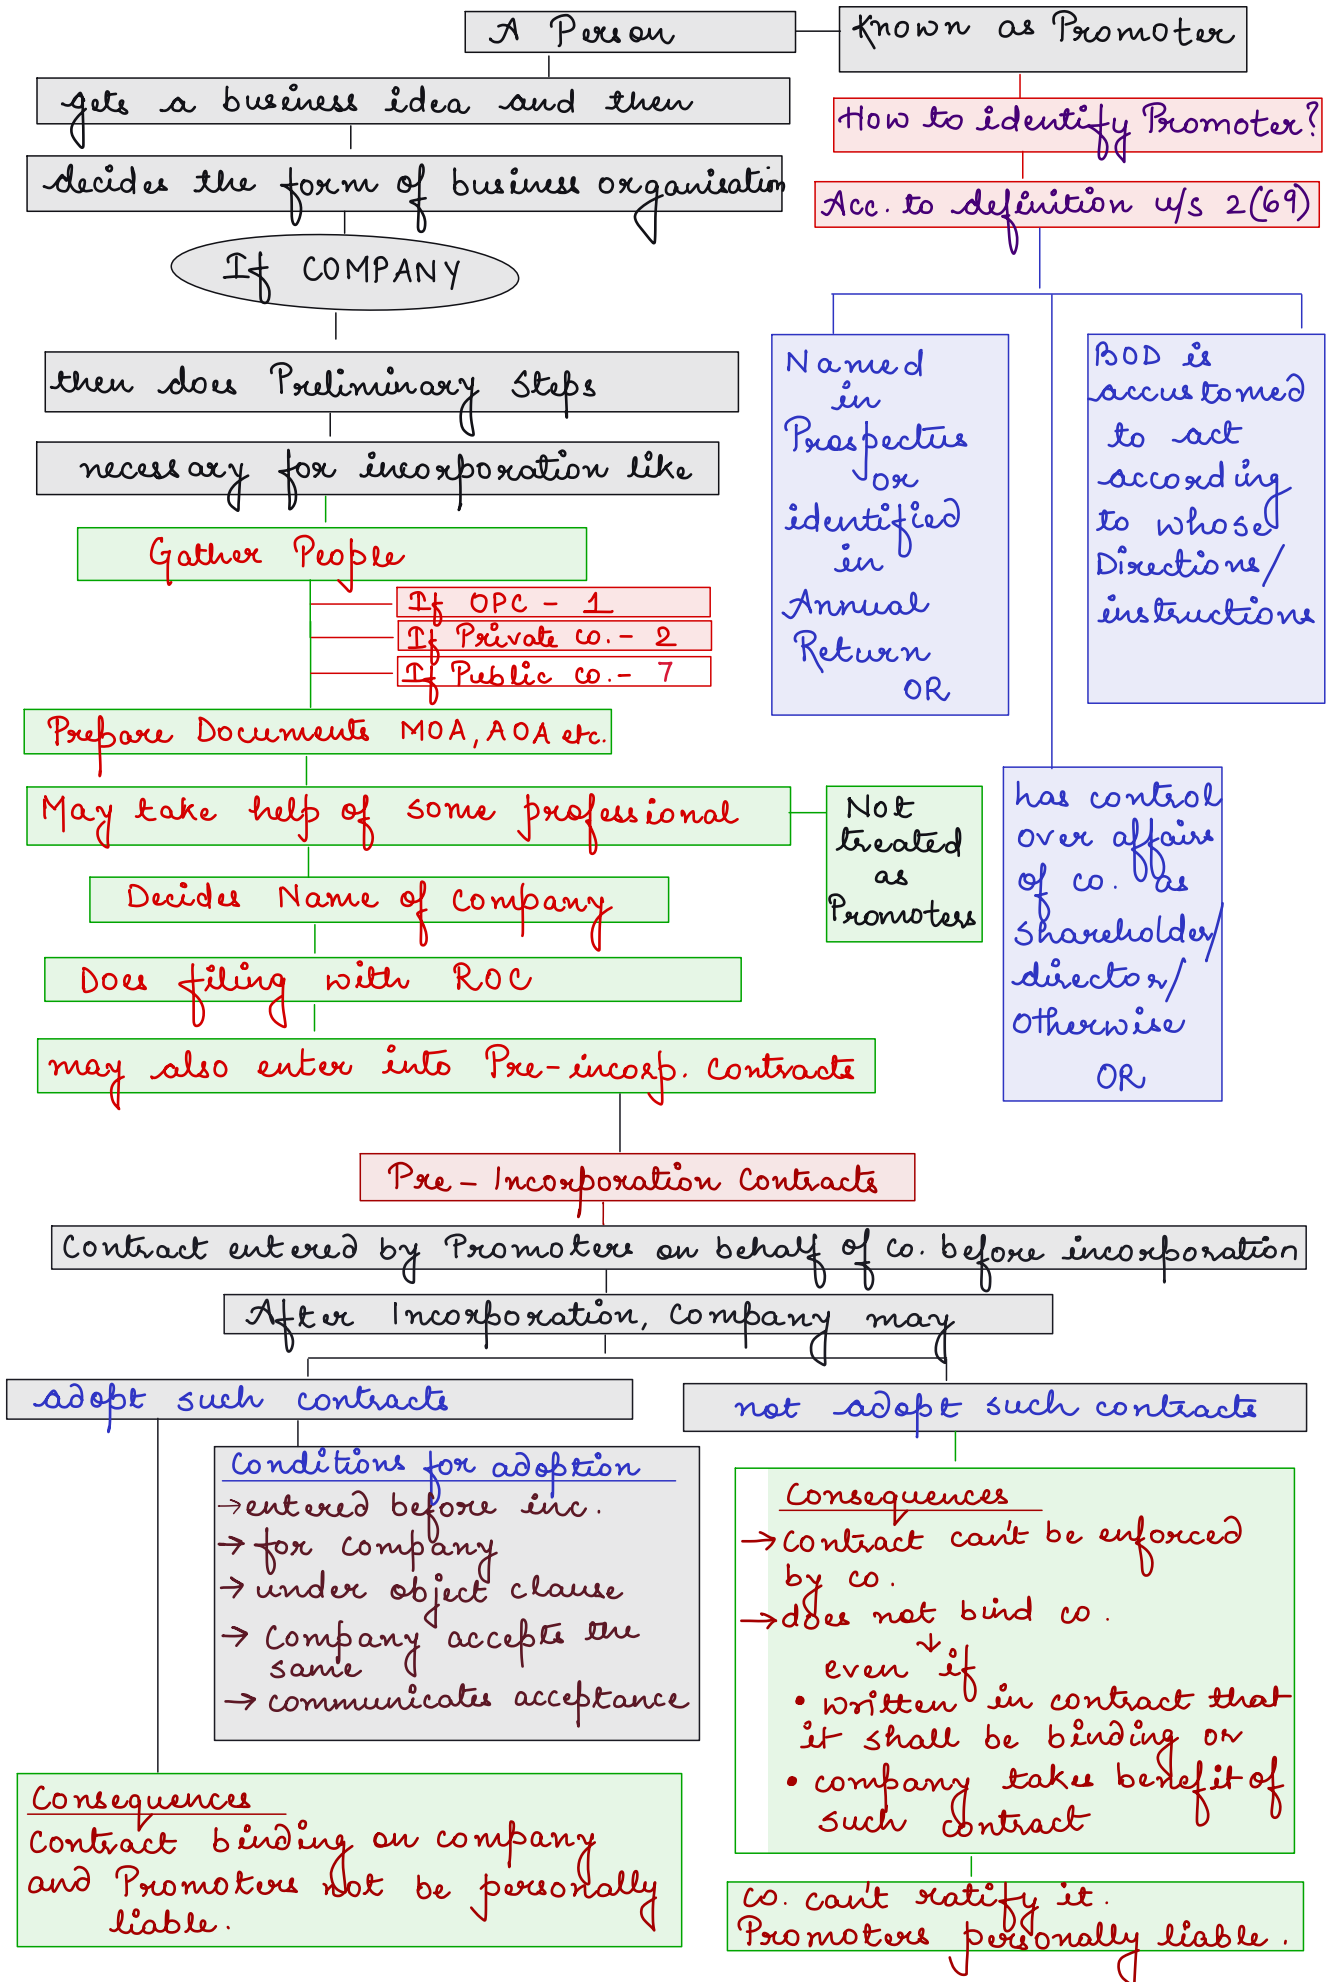 A Person
Known as Promoter
gets a business idea and then
decides the form of business organisation
If COMPANY
then does Preliminary Steps
necessary for incorporation like
Gather People
If OPC - 1
If Private co. - 2
If Public co. - 7
Prepare Documents MOA, AOA etc.
May take help of some professional
Not
treated
as
Promoters
Decides Name of company
Does filing with ROC
may also enter into Pre-incorp. contracts
How to identify Promoter?
Acc. to definition u/s 2(69)
Named
in
Prospectus
or
identified
in
Annual
Return
OR
has control
over affairs
of co. as
shareholder/
director/
otherwise
OR
BOD is
accustomed
to act
according
to whose
Directions/
instructions
Pre - Incorporation Contracts
Contract entered by Promoters on behalf of co. before incorporation
After Incorporation, company may
adopt such contracts
Conditions for adoption
→ entered before inc.
→ for company
→ under object clause
→ Company accepts the
same
→ communicates acceptance
Consequences
Contract binding on company
and Promoters not be personally
liable.
not adopt such contracts
Consequences
→ Contract can't be enforced
by co.
→ does not bind co.
↓
even if
• written in contract that
it shall be binding or
• company takes benefit of
such contract
co. can't ratify it.
Promoters personally liable.